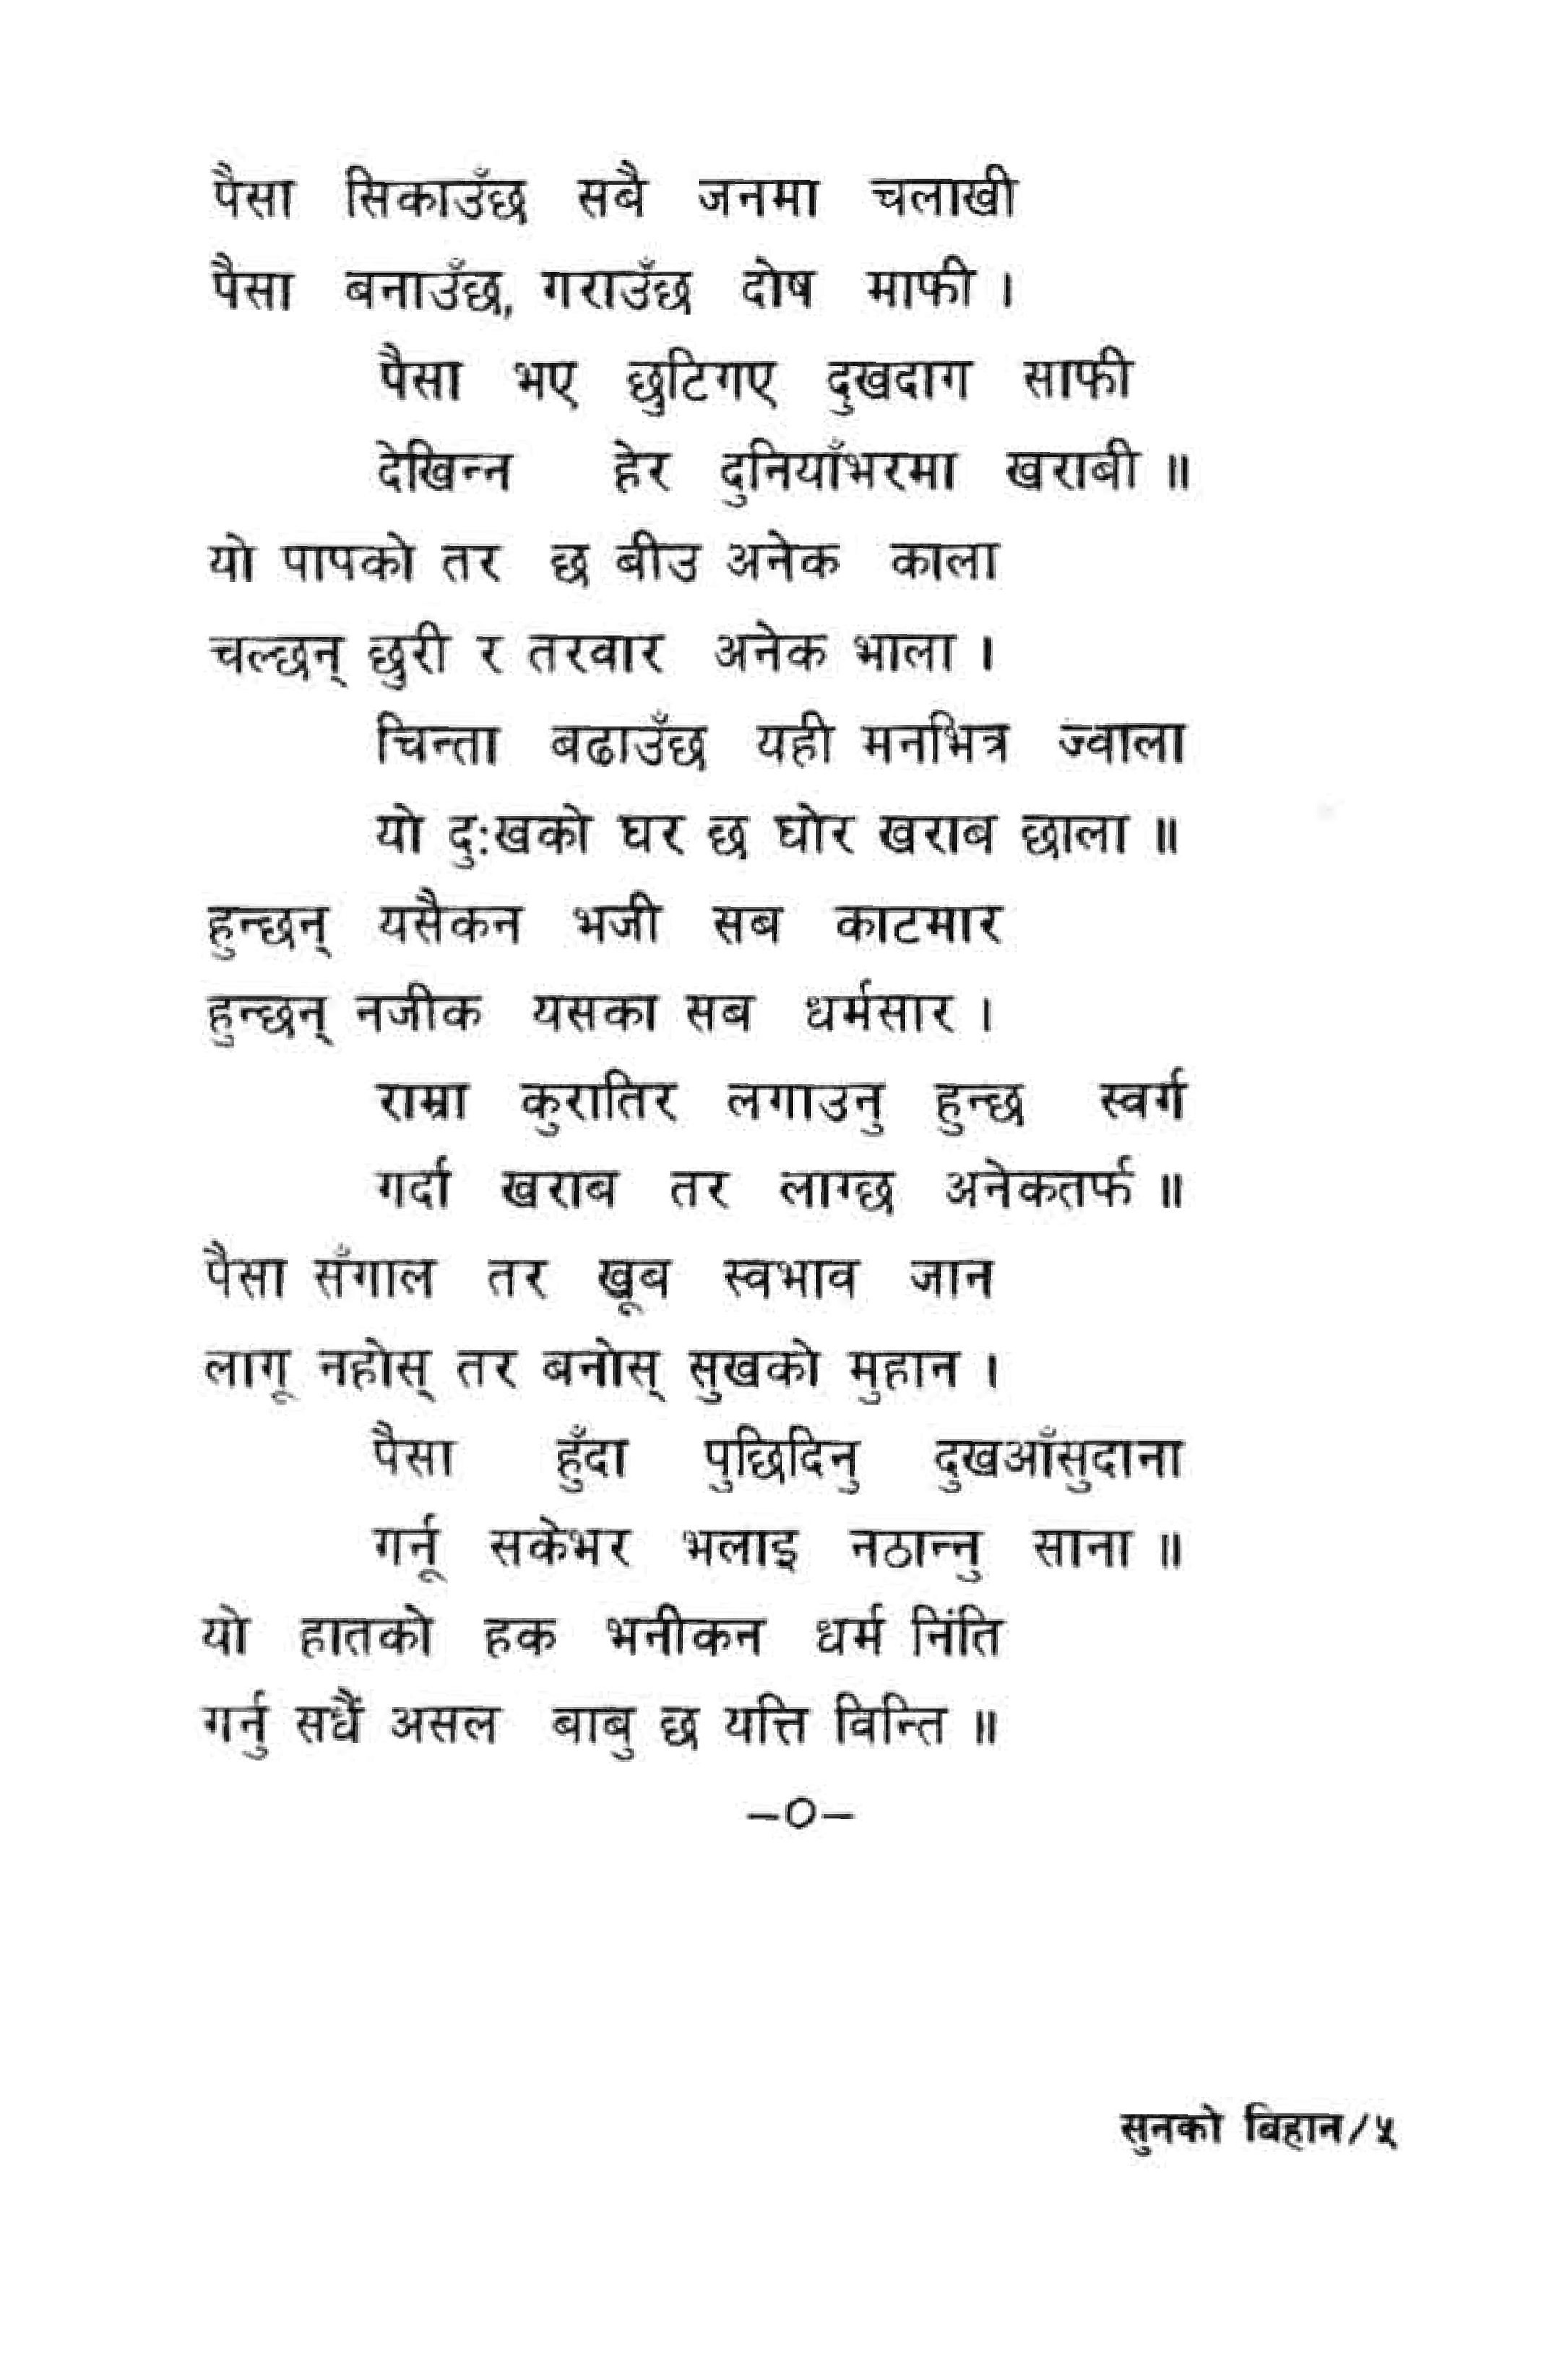 पैसा सिकाउँछ सबै जनमा चलाखी
पैसा बनाउँछ, गराउँछ दोष माफी ।
पैसा भए छुटिगए दुखदाग साफी
देखिन्न हेर दुनियाँभरमा खराबी ॥
यो पापको तर छ बीउ अनेक काला
चल्छन् छुरी र तरवार अनेक भाला ।
चिन्ता बढाउँछ यही मनभित्र ज्वाला
यो दुःखको घर छ घोर खराब छाला ॥
हुन्छन् यसैकन भजी सब काटमार
हुन्छन् नजीक यसका सब धर्मसार ।
राम्रा कुरातिर लगाउनु हुन्छ स्वर्ग
गर्दा खराब तर लाग्छ अनेकतर्फ ॥
पैसा सँगाल तर खूब स्वभाव जान
लागू नहोस् तर बनोस् सुखको मुहान ।
पैसा हुँदा पुछिदिनु दुखआँसुदाना
गर्नू सकेभर भलाइ नठान्नु साना ॥
यो हातको हक भनीकन धर्म निंति
गर्नु सधैं असल बाबु छ यत्ति विन्ति ॥
–०–
सुनको बिहान/५